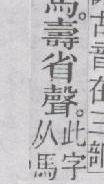 馬。壽省聲。此字
从馬
古音在三部